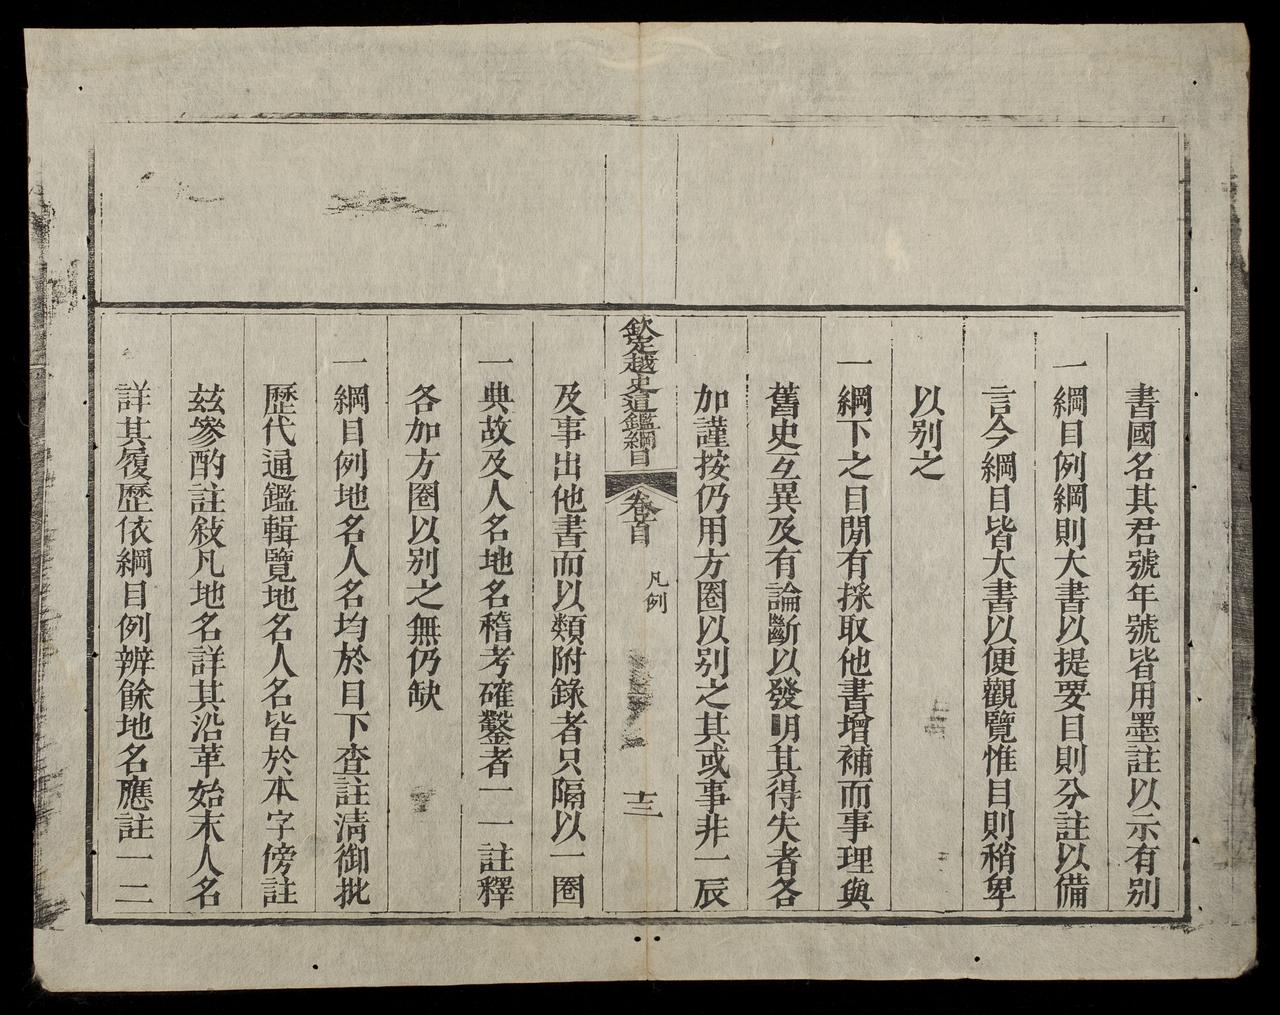 書國名其君號年號皆用墨註以示有別
一綱目例綱則大書以提要目則分註以備
言今綱目皆大書以便觀覽惟目則稍卑
以別之
一綱下之目閒有採取他書增補而事理與
舊史互異及有論斷以發明其得失者各
加謹按仍用方圈以別之其或事非一辰
欽定越史通鑑綱目 卷首 凡例 十三
及事出他書而以類附錄者只隔以一圈
一典故及人名地名稽考確鑿者一一註釋
各加方圈以別之無仍缺
一綱目例地名人名均於目下查註清御批
歷代通鑑輯覽地名人名皆於本字傍註
茲參酌註敍凡地名詳其沿革始末人名
詳其履歷依綱目例辨餘地名應註一二